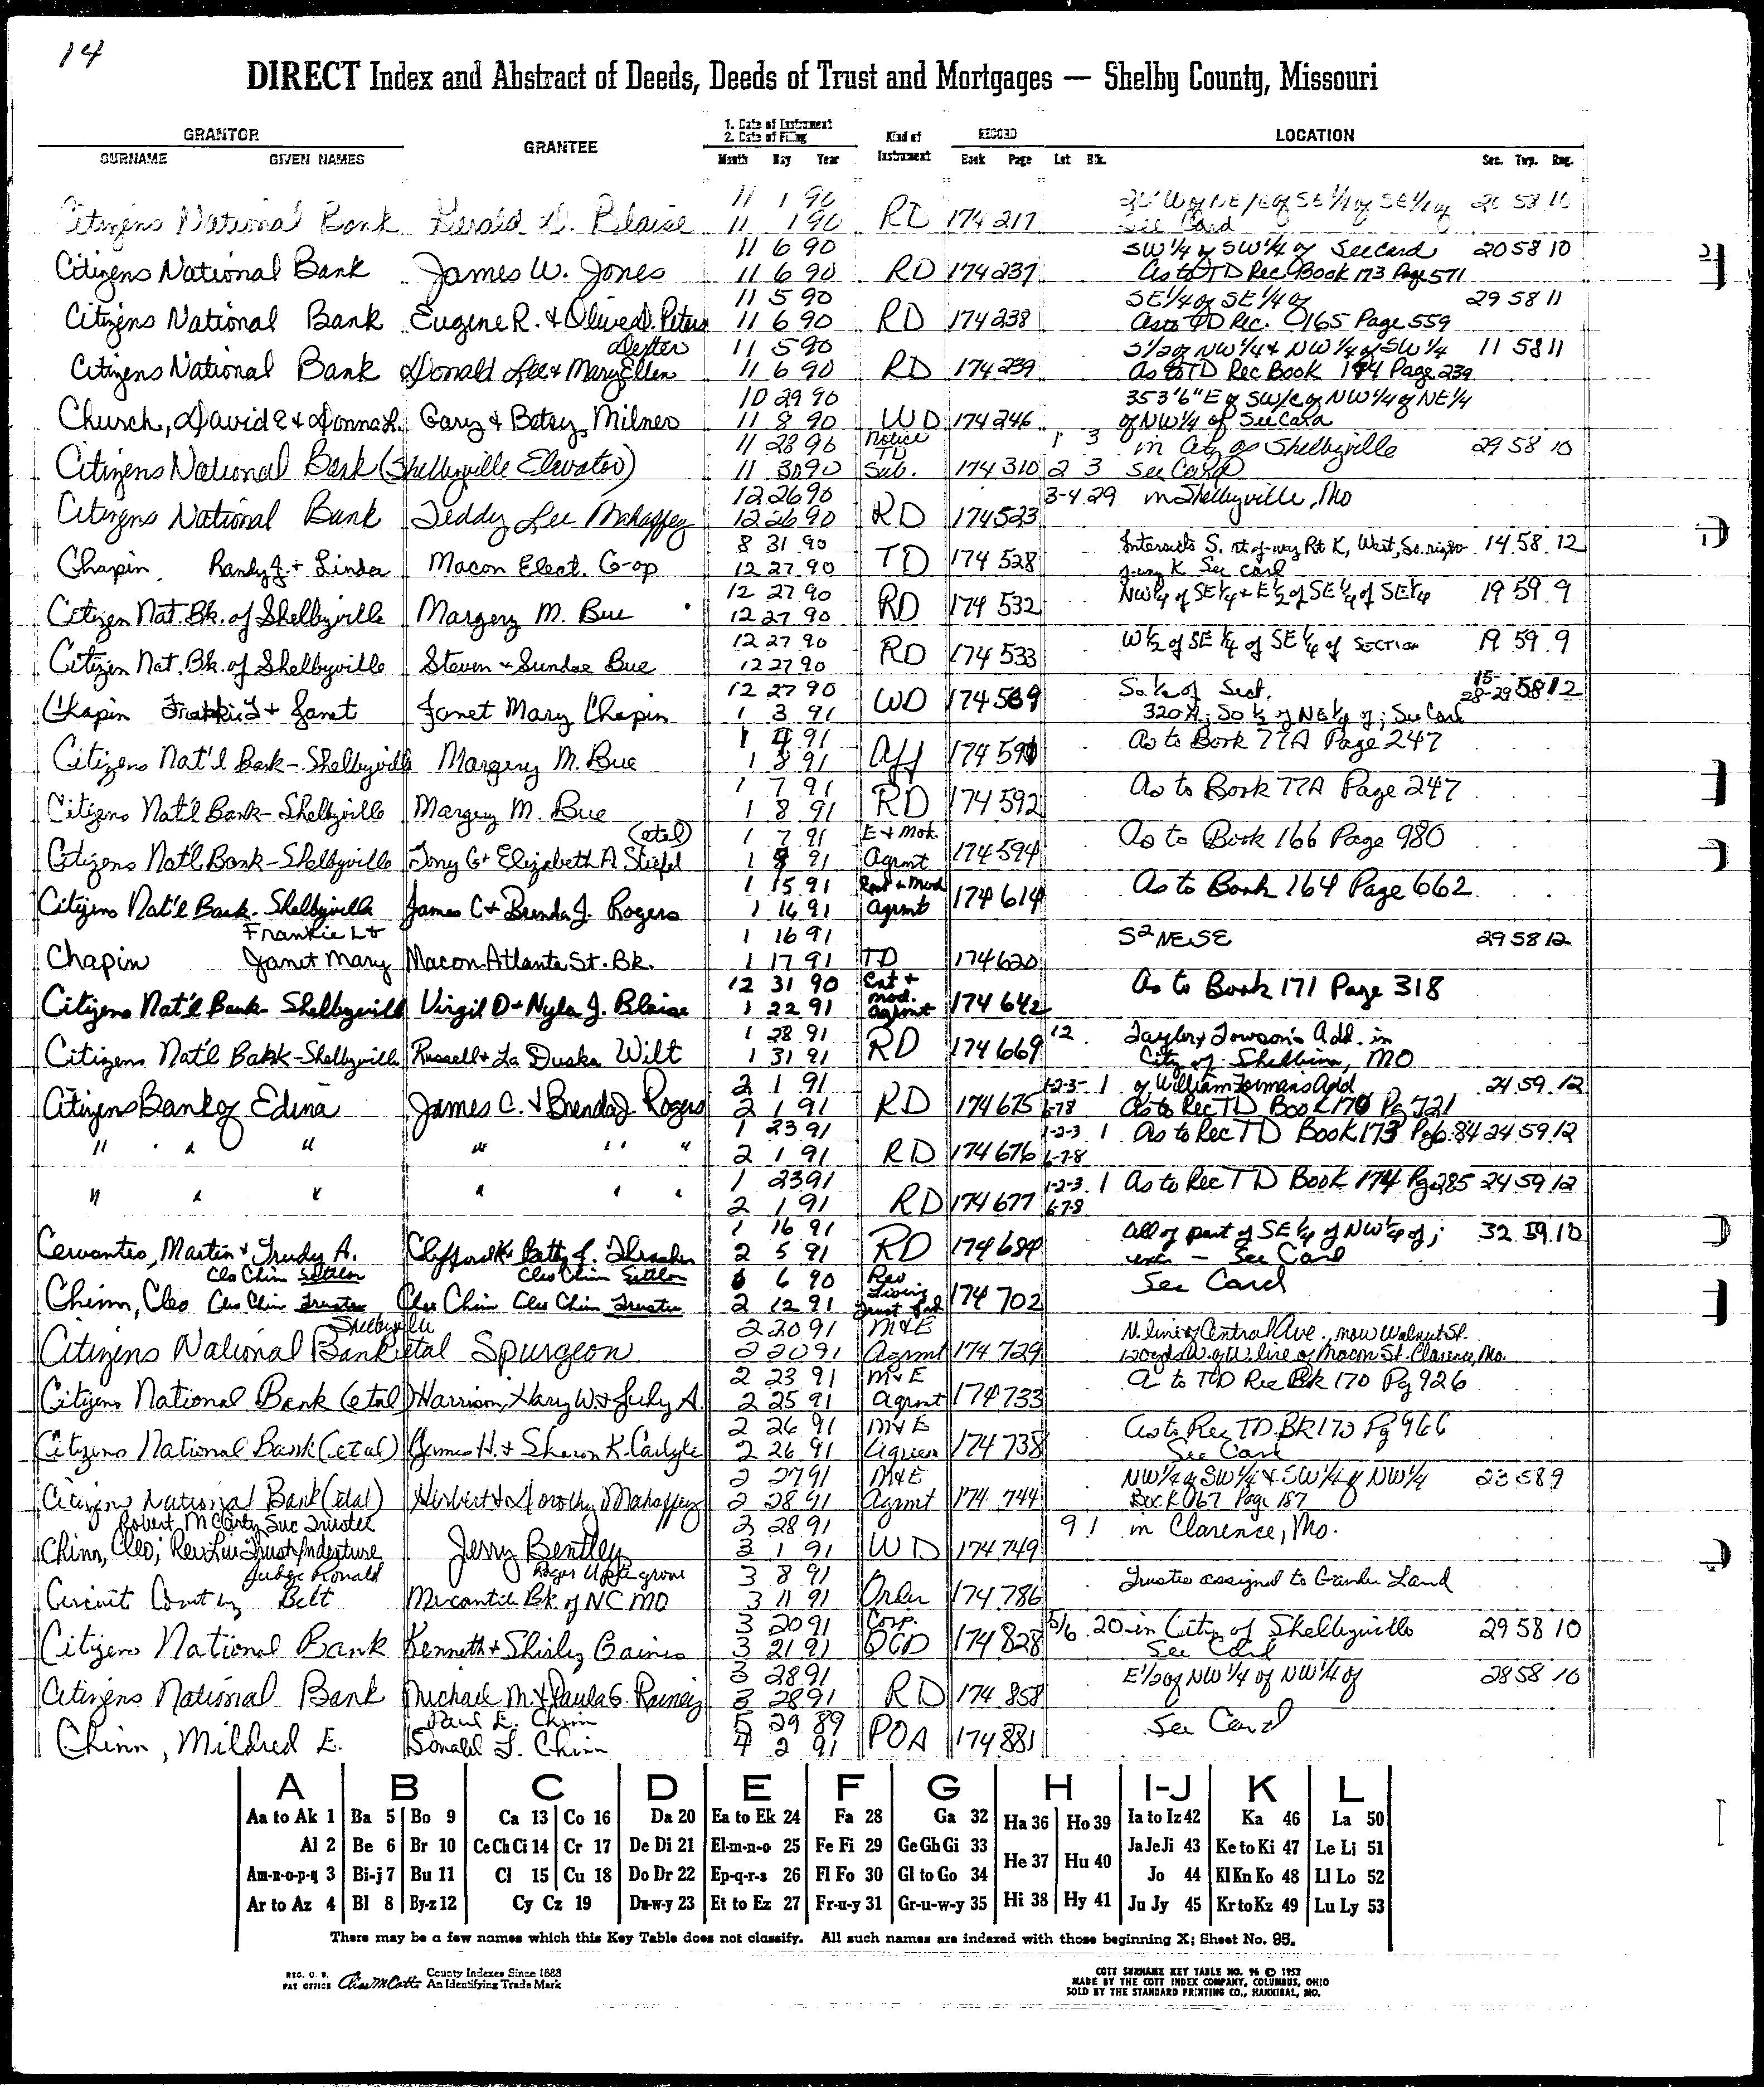 14
DIRECT Index and Abstract of Deeds, Deeds of Trust and Mortgages — Shelby County, Missouri
GRANTOR GRANTEE 1. Date of Instrument 2. Date of Filing Kind of Instrument RECORD LOCATION
SURNAME GIVEN NAMES Month Day Year Book Page Lot Blk. Sec. Twp. Rng.
11 1 90
Citizens National Bank Gerald D. Blaise 11 1 90 RD 174 217 See Card 20 58 10
11 6 90 SW 1/4 of SW 1/4 of See Card 20 58 10
Citizens National Bank James W. Jones 11 6 90 RD 174 237 As to TD Rec Book 173 Page 571
11 5 90 SE 1/4 of SE 1/4 of 29 58 11
Citizens National Bank Eugene R. & Olive D. Peters 11 6 90 RD 174 238 As to TD Rec. 165 Page 559
Dexter 11 5 90 S 1/2 of NW 1/4 & NW 1/4 of SW 1/4 11 58 11
Citizens National Bank Donald Lee & Mary Ellen 11 6 90 RD 174 239 As to TD Rec Book 174 Page 239
10 29 90 353'6" E of SW/c of NW 1/4 of NE 1/4
Church, David E & Donna L. Gary & Betsy Milner 11 8 90 WD 174 246 of NW 1/4 of See Card
11 28 90 Notice TD 1 3 in City of Shelbyville 29 58 10
Citizens National Bank (Shelbyville Elevator) 11 30 90 Sub. 174 310 2 3 See Card
12 26 90 3-4 29 in Shelbyville, Mo
Citizens National Bank Teddy Lee Mahaffey 12 26 90 RD 174 523
8 31 90 Intersects S. rt of-way Rt K, West, So. right 14 58 12
Chapin, Randy J. & Linda Macon Elect. Co-op 12 27 90 TD 174 528 of-way K See Card
12 27 90 NW 1/4 of SE 1/4 + E 1/2 of SE 1/4 of SE 1/4 19 59 9
Citizen Nat. Bk. of Shelbyville Margery M. Bue 12 27 90 RD 174 532
12 27 90 W 1/2 of SE 1/4 of SE 1/4 of Section 19 59 9
Citizen Nat. Bk. of Shelbyville Steven & Sundae Bue 12 27 90 RD 174 533
12 27 90 So. 1/2 of Sect. 15-28-29 58 12
Chapin Frankie L & Janet Janet Mary Chapin 1 3 91 WD 174 569 320 A; So 1/2 of NE 1/4 of; See Card
1 4 91 As to Book 77A Page 247
Citizens Nat'l Bank - Shelbyville Margery M. Bue 1 8 91 Aff 174 591
1 7 91 As to Book 77A Page 247
Citizens Nat'l Bank - Shelbyville Margery M. Bue 1 8 91 RD 174 592
(etal) 1 7 91 E & Mod. As to Book 166 Page 980
Citizens Nat'l Bank - Shelbyville Tony G & Elizabeth A Stiefel 1 8 91 Agrmt 174 594
1 15 91 As to Book 164 Page 662
Citizens Nat'l Bank - Shelbyville James C & Brenda J. Rogers 1 16 91 Agrmt 174 614
Frankie L & 1 16 91 S2 NE SE 29 58 12
Chapin Janet Mary Macon-Atlanta St. Bk. 1 17 91 TD 174 620
12 31 90 Ext & Mod. As to Book 171 Page 318
Citizens Nat'l Bank - Shelbyville Virgil D & Nyla J. Blaise 1 22 91 Agrmt 174 642
1 28 91 12 Taylor & Towson's Add. in
Citizens Nat'l Bank - Shelbyville Russell & La Duska Wilt 1 31 91 RD 174 669 City of Shelbina, MO
2 1 91 1-2-3- 1 of William Formans Add 24 59 12
Citizens Bank of Edina James C. & Brenda J Rogers 2 1 91 RD 174 675 6-7-8 As to Rec TD Book 170 Pg 721
1 23 91 1-2-3 1 As to Rec TD Book 173 Pg 684 24 59 12
" " " " " " 2 1 91 RD 174 676 6-7-8
1 23 91 1-2-3 1 As to Rec TD Book 174 Pg 285 24 59 12
" " " " " " 2 1 91 RD 174 677 6-7-8
1 16 91 All of part of SE 1/4 of NW 1/4 of; 32 59 10
Cervantes, Martin & Trudy A. Clifford K. Betty J. Thrasher 2 5 91 RD 174 684 exc - See Card
Cleo Chinn Settlor Cleo Chinn Settlor 6 6 90 Rev Living See Card
Chinn, Cleo Cleo Chinn Trustee Cleo Chinn Cleo Chinn Trustee 2 12 91 Trust 174 702
Shelbyville 2 20 91 M&E N. line of Central Ave., now Walnut St.
Citizens National Bank etal Spurgeon 2 20 91 Agrmt 174 729 120 yds W. of W line of Macon St. Clarence, Mo.
2 23 91 M&E As to TD Rec Bk 170 Pg 926
Citizens National Bank (etal) Harrison, Gary W & Judy A. 2 25 91 Agrmt 174 733
2 26 91 M&E As to Rec TD Bk 173 Pg 966
Citizens National Bank (etal) James H. & Sharon K. Carlyle 2 26 91 Agreem 174 738 See Card
2 27 91 M&E NW 1/4 of SW 1/4 & SW 1/4 of NW 1/4 23 58 9
Citizens National Bank (etal) Herbert & Dorothy Mahaffey 2 28 91 Agrmt 174 744 Book 167 Page 187
Robert McCarty Suc Trustee 2 28 91 9 1 in Clarence, Mo.
Chinn, Cleo; Rev Liv Trust Indenture Jerry Bentley 3 1 91 WD 174 749
Judge Ronald Roger Uppegrove 3 8 91 Trustee assigned to Land
Circuit Court by Belt Mercantile Bk. of NC MO 3 11 91 Order 174 786
3 20 91 Corp. 5/6 20 in City of Shelbyville 29 58 10
Citizens National Bank Kenneth & Shirley Gaines 3 21 91 QCD 174 828 See Card
3 28 91 E 1/2 of NW 1/4 of NW 1/4 of 28 58 10
Citizens National Bank Michael M. & Paula G. Rainey 3 28 91 RD 174 858
Paul E. Chinn 5 29 89 See Card
Chinn, Mildred E. Donald L. Chinn 4 2 91 POA 174 881
A B C D E F G H I-J K L
Aa to Ak 1 Ba 5 Bo 9 Ca 13 Co 16 Da 20 Ea to Ek 24 Fa 28 Ga 32 Ha 36 Ho 39 Ia to Iz 42 Ka 46 La 50
Al 2 Be 6 Br 10 Ce Ch Ci 14 Cr 17 De Di 21 El-m-n-o 25 Fe Fi 29 Ge Gh Gi 33 He 37 Hu 40 Ja Je Ji 43 Ke to Ki 47 Le Li 51
Am-n-o-p-q 3 Bi-j 7 Bu 11 Cl 15 Cu 18 Do Dr 22 Ep-q-r-s 26 Fl Fo 30 Gl to Go 34 Jo 44 Kl Kn Ko 48 Ll Lo 52
Ar to Az 4 Bl 8 By-z 12 Cy Cz 19 Du-w-y 23 Et to Ez 27 Fr-u-y 31 Gr-u-w-y 35 Hi 38 Hy 41 Ju Jy 45 Kr to Kz 49 Lu Ly 53
There may be a few names which this Key Table does not classify. All such names are indexed with those beginning X; Sheet No. 95.
REG. U. S. PAT OFFICE County Indexes Since 1888 An Identifying Trade Mark
COTT SURNAME KEY TABLE NO. 96 © 1952
MADE BY THE COTT INDEX COMPANY, COLUMBUS, OHIO
SOLD BY THE STANDARD PRINTING CO., HANNIBAL, MO.